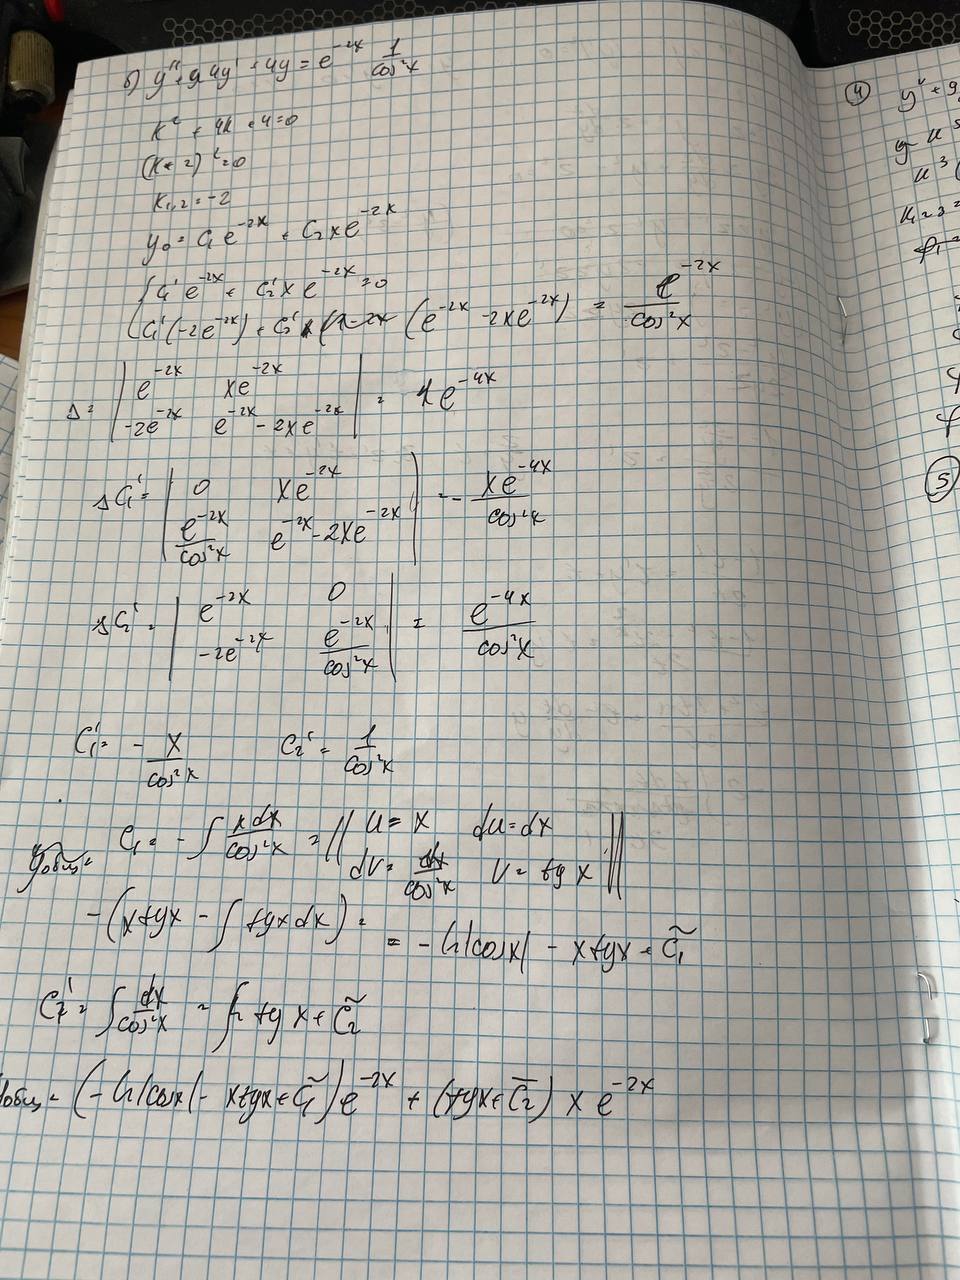 б) y'' + 4y' + 4y = e^{-2x} 1/cos²x
k² + 4k + 4 = 0
(k + 2)² = 0
k_{1,2} = -2
y₀ = C₁e^{-2x} + C₂xe^{-2x}
{ C₁'e^{-2x} + C₂'xe^{-2x} = 0
C₁'(-2e^{-2x}) + C₂'(e^{-2x} - 2xe^{-2x}) = e^{-2x}/cos²x
Δ = | e^{-2x} xe^{-2x} |
| -2e^{-2x} e^{-2x} - 2xe^{-2x} | = e^{-4x}
ΔC₁' = | 0 xe^{-2x} |
| e^{-2x}/cos²x e^{-2x} - 2xe^{-2x} | = - xe^{-4x}/cos²x
ΔC₂' = | e^{-2x} 0 |
| -2e^{-2x} e^{-2x}/cos²x | = e^{-4x}/cos²x
C₁' = - x/cos²x C₂' = 1/cos²x
C₁ = - ∫ xdx/cos²x = || u = x du = dx
dv = dx/cos²x v = tgx ||
-(xtgx - ∫ tgxdx) =
= - ln|cosx| - xtgx + C̃₁
C₂' = ∫ dx/cos²x = tgx + C̃₂
yобщ = (-ln|cosx| - xtgx + C̃₁)e^{-2x} + (tgx + C̃₂) x e^{-2x}
④
y'' + y
5